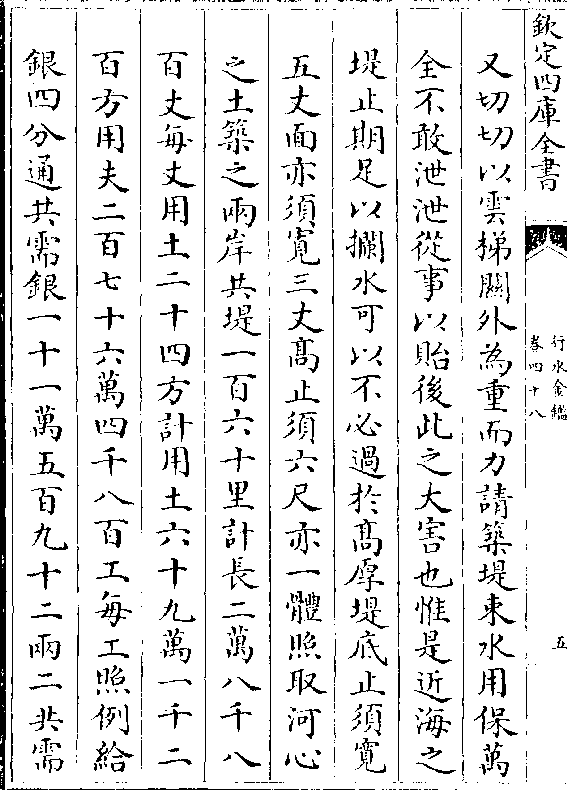 欽定四庫全書
行水金鑑
卷四十八
五
又切切以雲梯關外為重而力請築堤束水用保萬
全不敢泄泄從事以貽後此之大害也惟是近海之
堤止期足以攔水可以不必過於髙厚堤底止須寛
五丈面亦須寛三丈髙止須六尺亦一體照取河心
之土築之兩岸共堤一百六十里計長二萬八千八
百丈每丈用土二十四方計用土六十九萬一千二
百方用夫二百七十六萬四千八百工每工照例給
銀四分通共需銀一十一萬五百九十二兩二共需